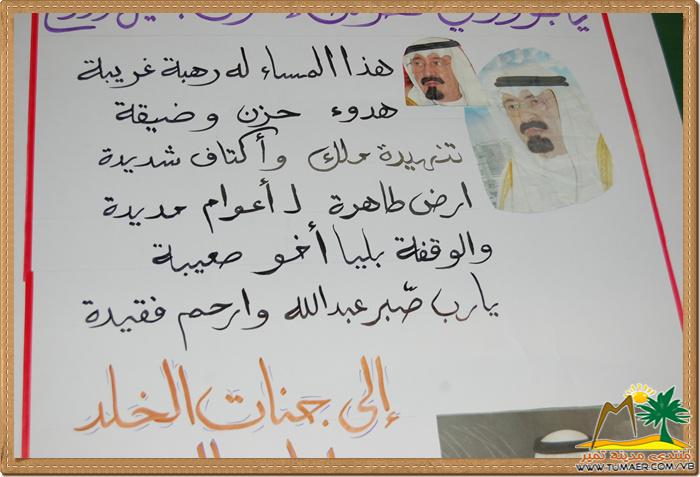 هذا المساء له رهبة غريبة
هدوء حزن وضيقة
تنهيدة ملك وأكتاف شديدة
ارض طاهرة لأعوام مديدة
والوقفة بليا أخو صعيبة
يارب صّبر عبدالله وارحم فقيدة
إلى جنات الخلد
منتدى مدينة تمير
WWW.TUMAER.COM/VB